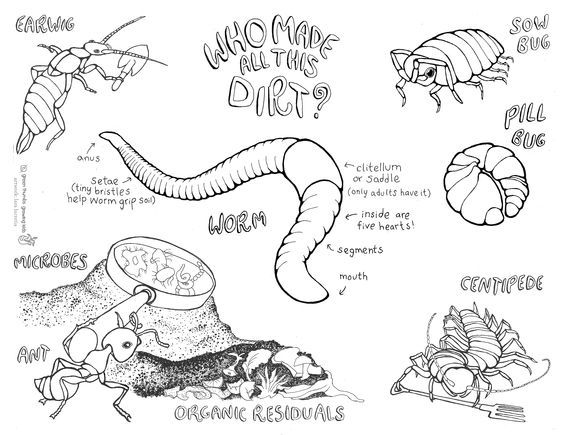 EARWIG
WHO MADE
ALL THIS
DIRT?
SOW
BUG
PILL
BUG
anus
setae
(tiny bristles
help worm grip soil)
WORM
clitellum
or saddle
(only adults have it)
inside are
five hearts!
segments
mouth
MICROBES
ANT
ORGANIC RESIDUALS
CENTIPEDE
green thumbs growing kids